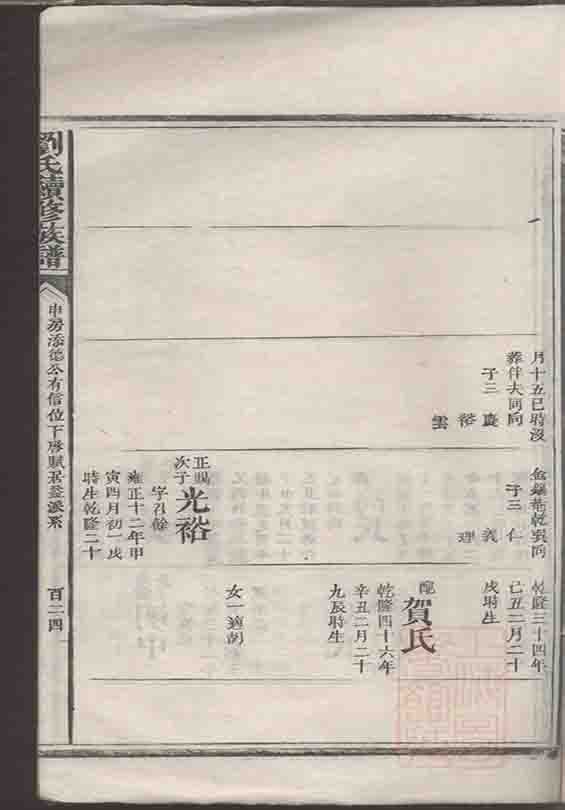 月十五巳時沒
葬伴夫同向
子三
慶
裕
雲
乾巽向
子三
仁
義
理
正賜
次子
光裕
字召餘
雍正十二年甲
寅四月初一戌
時生乾隆二十
乾隆三十四年
己丑二月二十
戌時生
配
賀氏
乾隆四十六年
辛丑二月二十
九辰時生
女一適胡
劉氏續修族譜
申房添德公有信位下啓賦居益派系
百二四